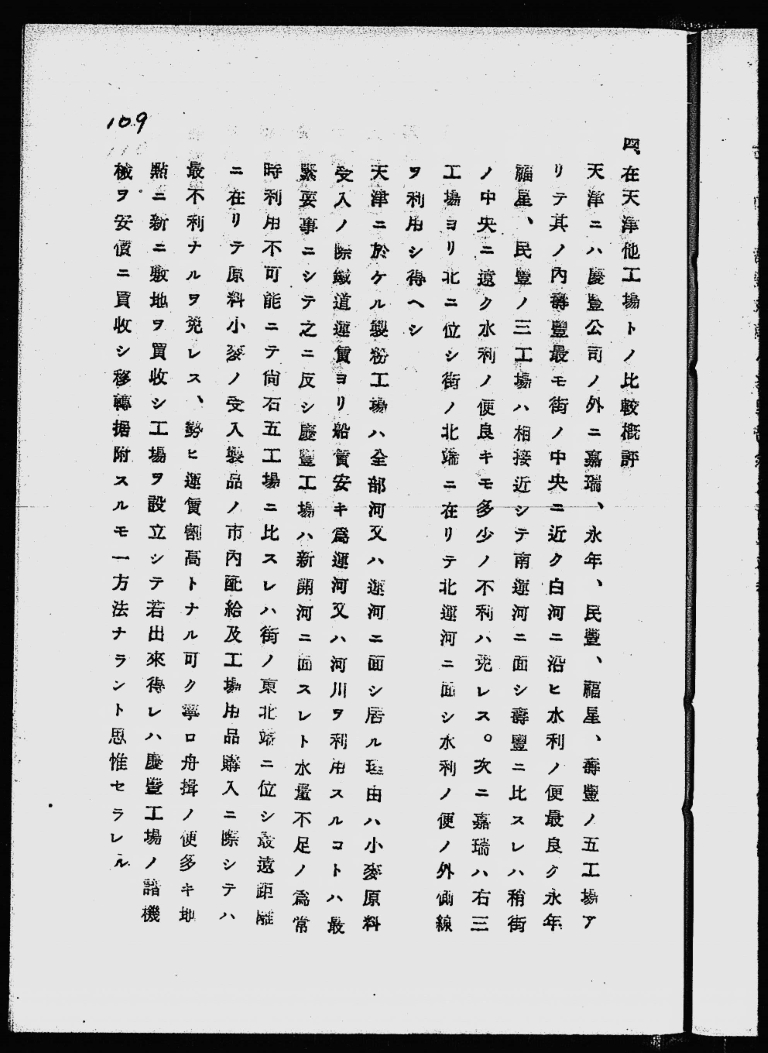 四、在天津他工場トノ比較概評
天津ニハ慶豐公司ノ外ニ嘉瑞、永年、民豐、福星、壽豐ノ五工場ア
リテ其ノ內壽豐最モ街ノ中央ニ近ク白河ニ沿ヒ水利ノ便最良ク永年
福星、民豐ノ三工場ハ相接近シテ南運河ニ面シ壽豐ニ比スレハ稍街
ノ中央ニ遠ク水利ノ便良キモ多少ノ不利ハ免レス。次ニ嘉瑞ハ右三
工場ヨリ北ニ位シ街ノ北端ニ在リテ北運河ニ面シ水利ノ便ノ外側線
ヲ利用シ得ヘシ
天津ニ於ケル製粉工場ハ全部河又ハ運河ニ面シ居ル理由ハ小麥原料
受入ノ際鐵道運賃ヨリ船賃安キ爲運河又ハ河川ヲ利用スルコトハ最
緊要事ニシテ之ニ反シ慶豐工場ハ新開河ニ面スレト水量不足ノ爲常
時利用不可能ニテ尙右五工場ニ比スレハ街ノ東北端ニ位シ最遠距離
ニ在リテ原料小麥ノ受入製品ノ市內配給及工場用品購入ニ際シテハ
最不利ナルヲ免レス、勢ヒ運賃割高トナル可ク寧ロ舟揖ノ便多キ地
點ニ新ニ敷地ヲ買收シ工場ヲ設立シテ若出來得レハ慶豐工場ノ諸機
械ヲ安價ニ買收シ移轉据附スルモ一方法ナラント思惟セラレル
109